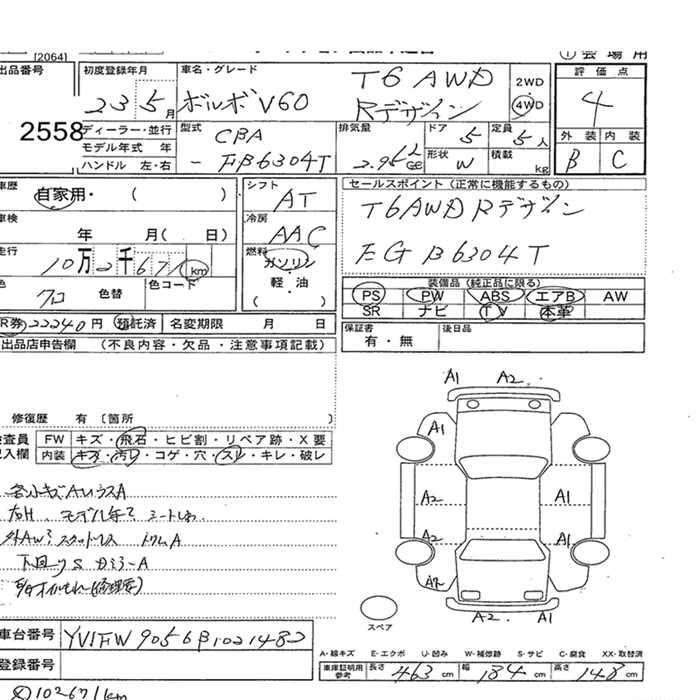 [2064]
① 会 場 用
出品番号
2558
初度登録年月
23 5月
車名・グレード
ボルボV60
T6 AWD
Rデザイン
2WD
4WD
評 価 点
4
外 装 内 装
B C
ディーラー・並行
モデル年式 年
ハンドル 左・右
型式
CBA
- FB6304T
排気量
2.95 L
ドア
5
定員
5人
形状
W
積載
kg
車歴
自家用・ ( )
車検
年 月( 日)
走行
10万2千671km
色
クロ 色替
色コード
シフト
AT
冷房
AAC
燃料
ガソリン
軽・油
( )
セールスポイント (正常に機能するもの)
T6AWD Rデザイン
EG B6304T
装備品 (純正品に限る)
PS PW ABS エアB AW
SR ナビ TV 本革
R券 22240円 預託済 名変期限 月 日
保証書
有・無
後日品
出品店申告欄 (不良内容・欠品・注意事項記載)
修復歴 有〔箇所 〕
検査員
記入欄
FW キズ・飛石・ヒビ割・リペア跡・X 要
内装 キズ・汚レ・コゲ・穴・スレ・キレ・破レ
各小キズA
右H. モデル年?
外AW? スタッドレス
下回りS
A1 A2
A1
A2 A1
A2 A1
A2 A1
スペア
A-線キズ E-エクボ U-凹み W-補修跡 S-サビ C-腐食 XX-取替済
車台番号 YV1FW9056B1021482
登録番号
車庫証明用
参考
長さ 463 cm 幅 184 cm 高さ 148 cm
102671km